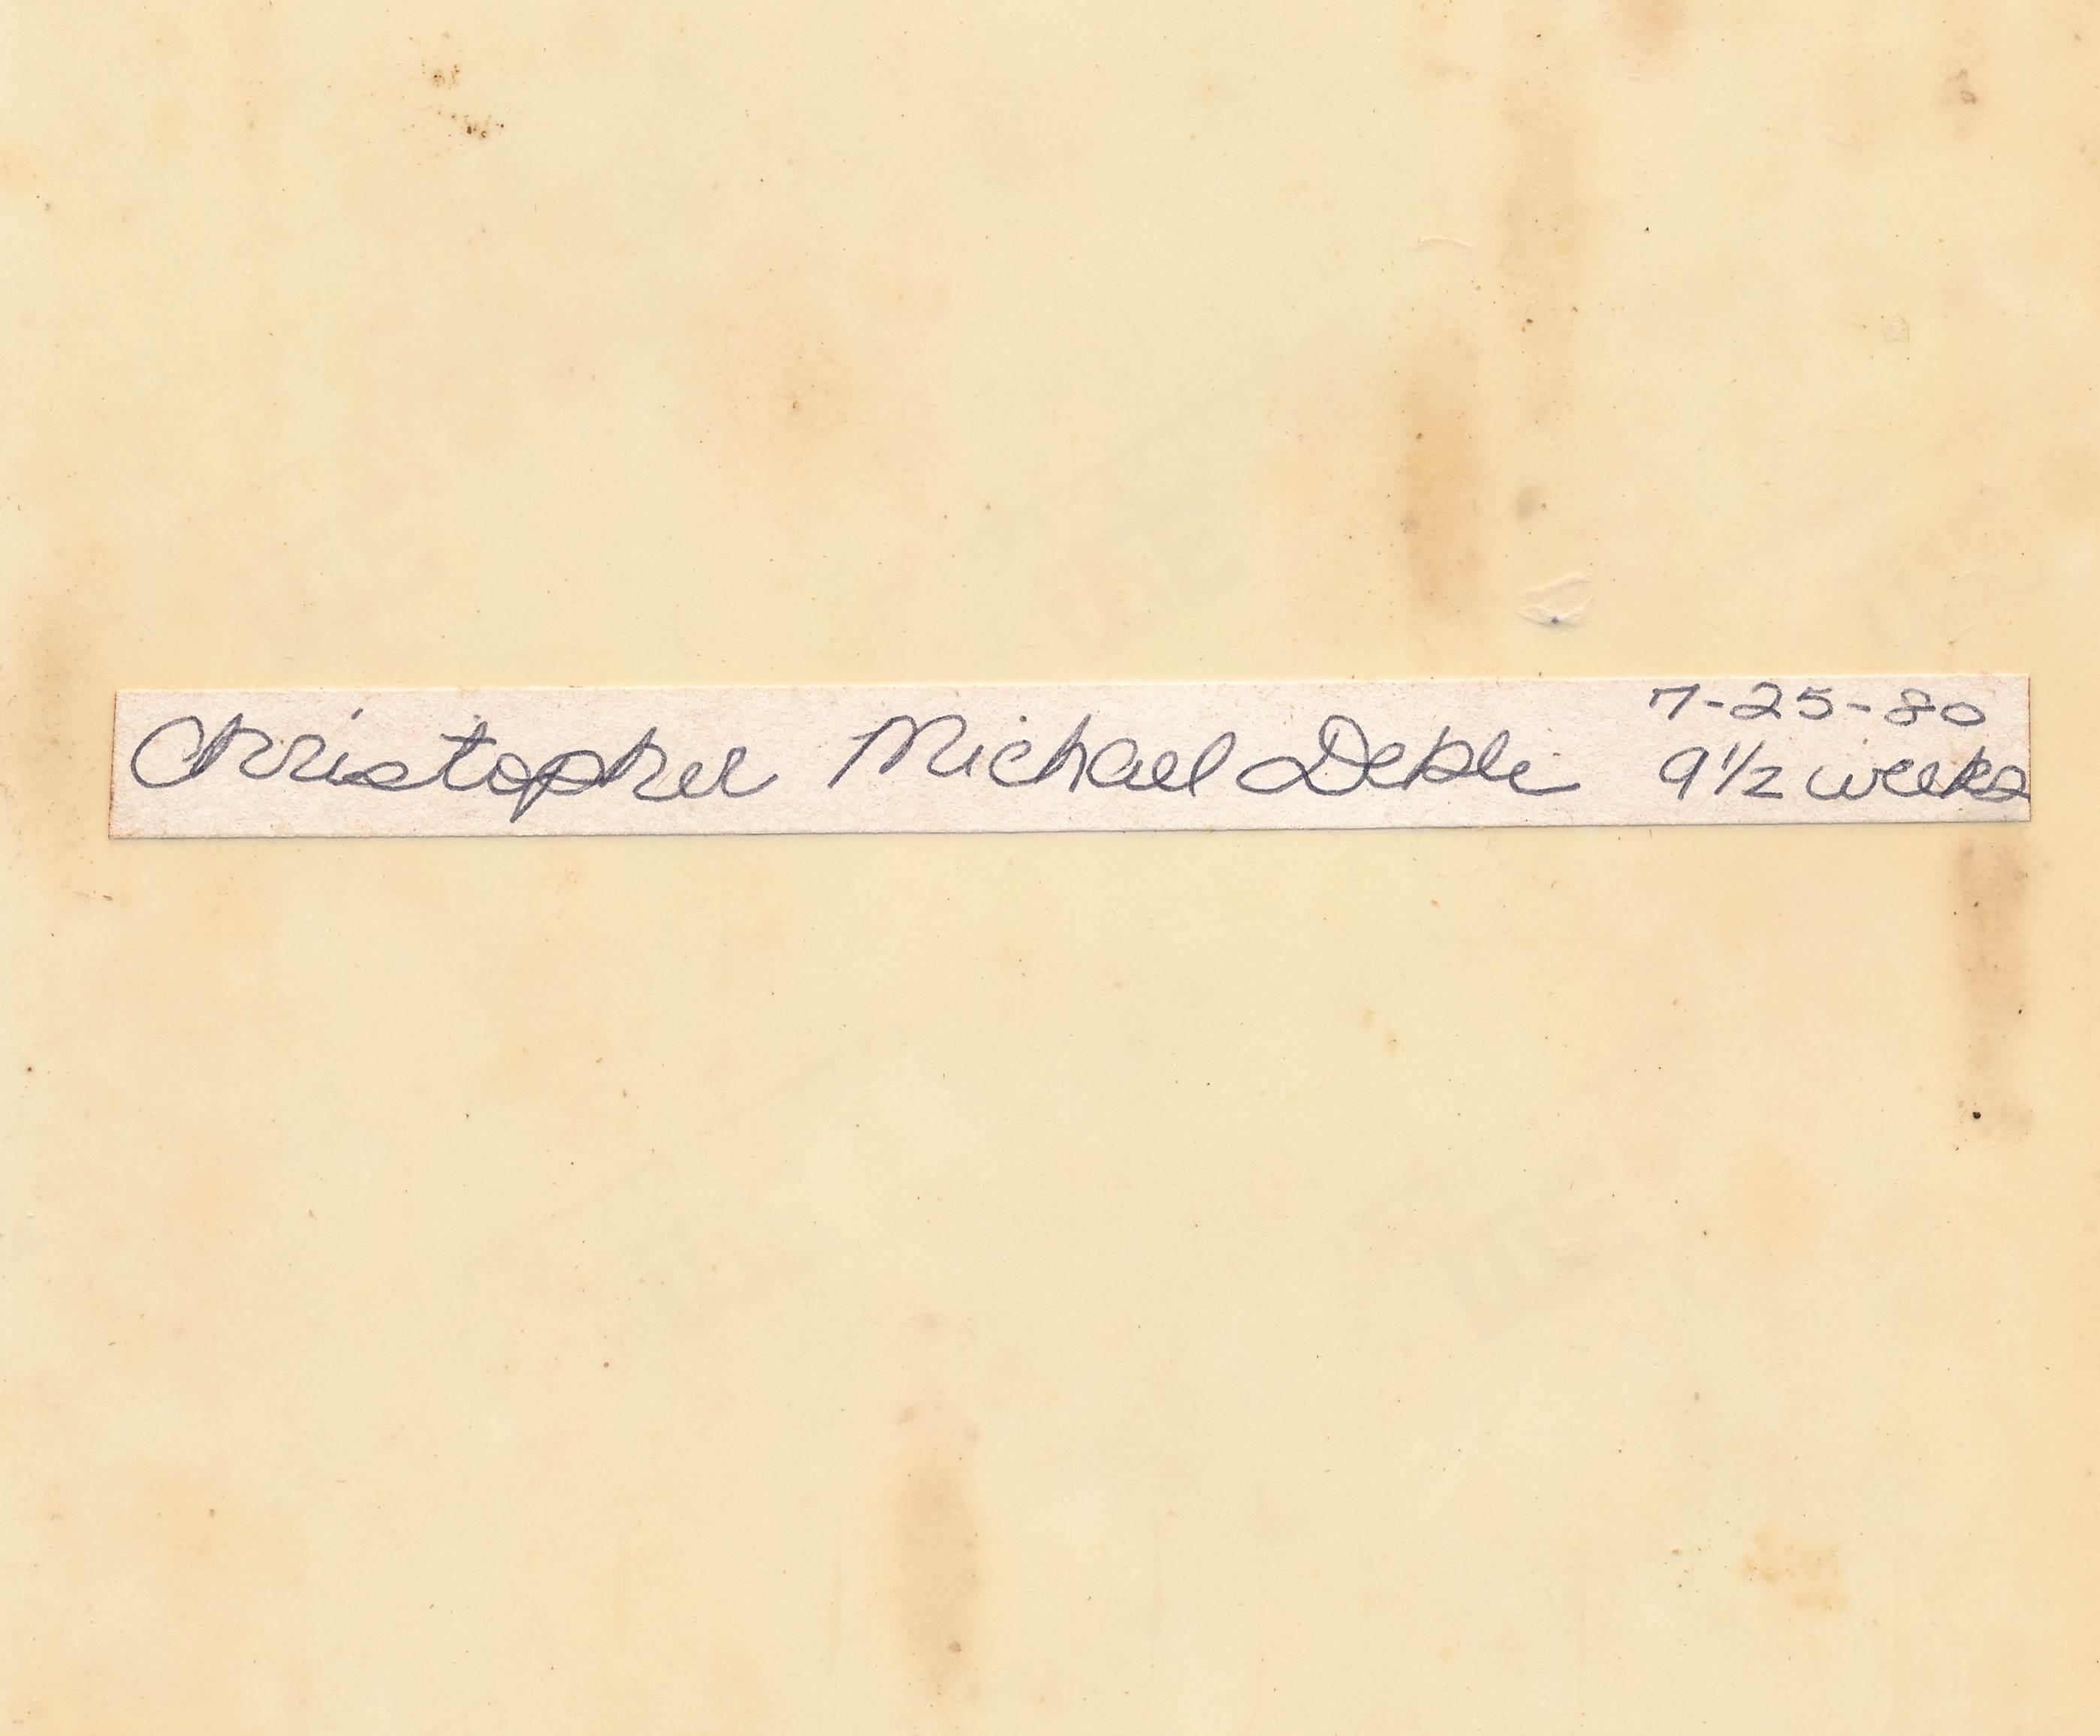 Christopher Michael Dekle 7-25-80
9 1/2 weeks